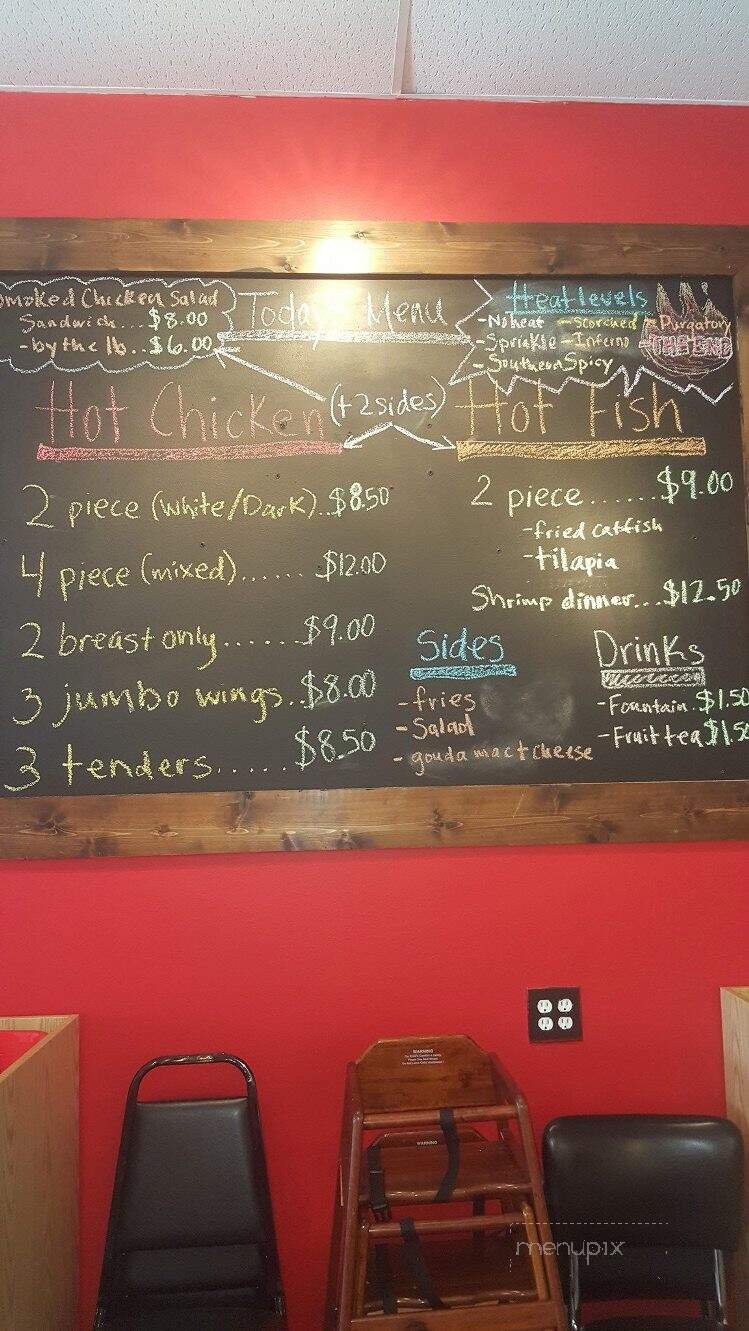 Smoked Chicken Salad
Sandwich...$8.00
-by the lb..$6.00
Today's Menu
Heat levels
-No heat
-Sprinkle
-Southern Spicy
-Scorched
-Inferno
-Purgatory
THE END
Hot Chicken
(+2 sides)
Hot Fish
2 piece (white/Dark)..$8.50
4 piece (mixed)......$12.00
2 breast only......$9.00
3 jumbo wings..$8.00
3 tenders......$8.50
2 piece......$9.00
-fried catfish
-tilapia
Shrimp dinner...$12.50
Sides
-fries
-Salad
-gouda mac+cheese
Drinks
-Fountain.$1.50
-Fruit tea $1.50
WARNING
WARNING
menupix